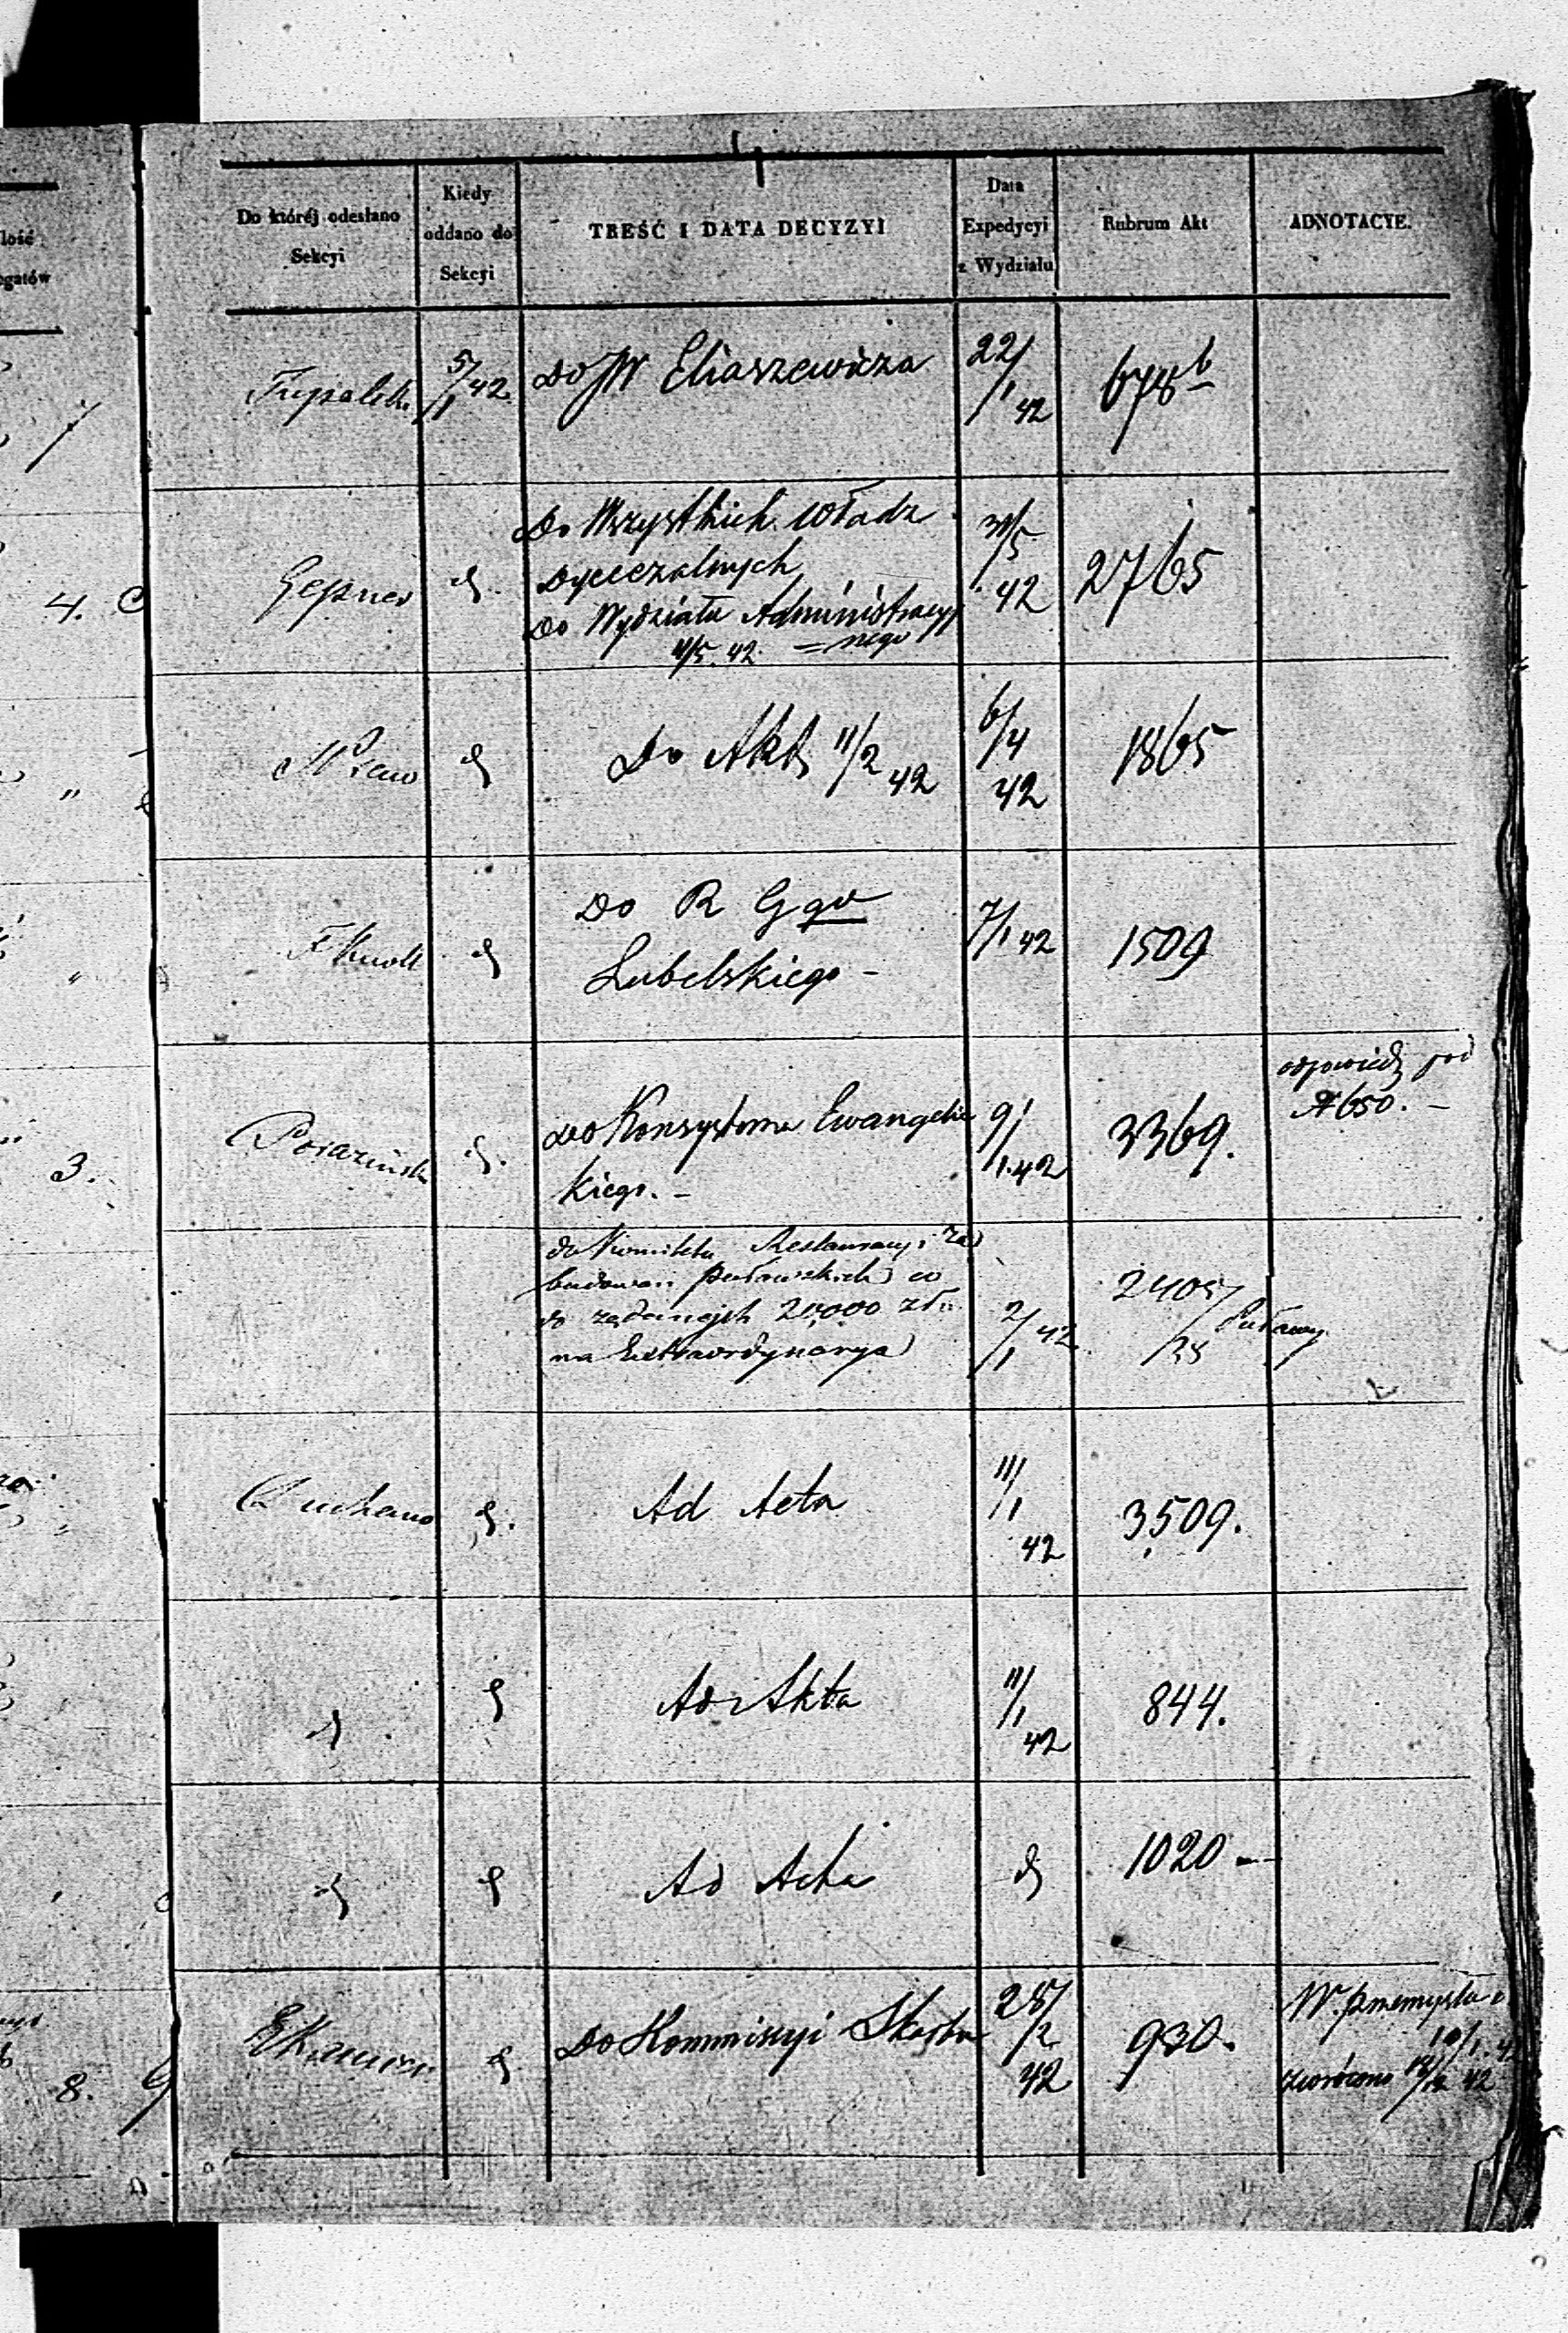 Do któréj odesłano
Sekcyi
Kiedy
oddano do
Sekcyi
TREŚĆ I DATA DECYZYI
Data
Expedycyi
z Wydziału
Rubrum Akt
ADNOTACYE.
5/1 42.
do JW Eliaszewicza
22/1 42
678b
Gepner
d.
Do Wszystkich Władz
Dyecezalnych
Do Wydziału Administracyj
=nego
11/5. 42.
31/5 42
2765
d
Do Akt 11/2 42
6/4 42
1865
d
Do R G go
Lubelskiego -
7/1 42
1509
d.
do Konsystorza Ewangelic
kiego. -
9/1. 42
3369.
odpowiedź pod
N 650. -
do Komitetu Restauracyi Za
budowań Puławskich co
do żądanych 20,000 złp
na Extraordynarya
2/1 42
2405/38
Puławy
d.
Ad Acta
11/1 42
3509.
d
d
Ad Akta
11/1 42
844.
d
d
Ad Acta
d
1020 -
d
Do Kommissyi Skarbu
28/2 42
930.
W. Przemysłu
10/1. 42
zwrócono 42
4. 
3.
8.
lość
egatów